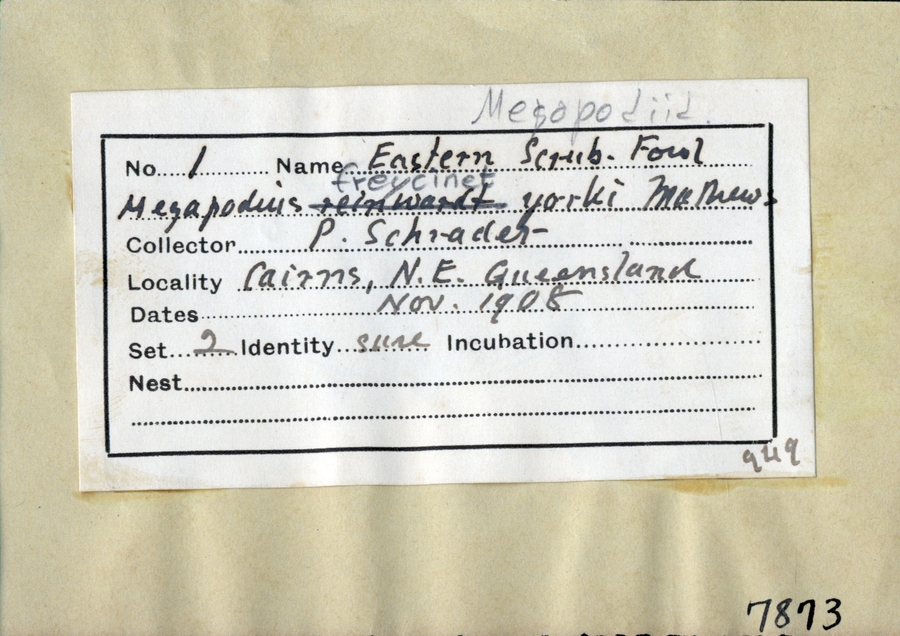 Megapodiid.
No. 1 Name Eastern Scrub. Fowl
freycinet
Megapodius reinwardt yorki Mathews
Collector P. Schrader
Locality Cairns, N.E. Queensland
Dates Nov. 1908
Set 2 Identity sure Incubation
Nest
949
7873